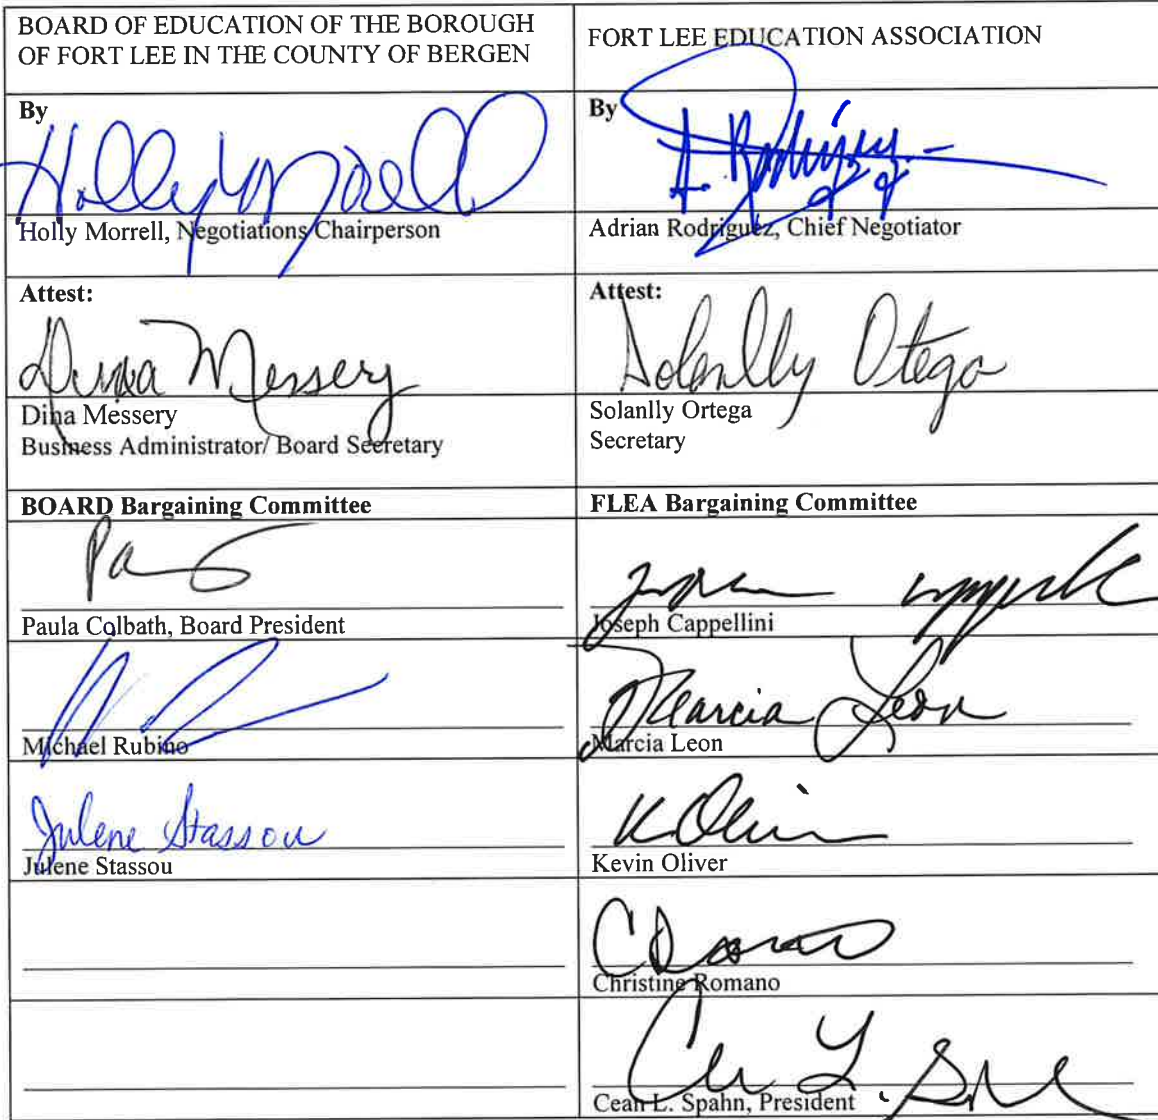 BOARD OF EDUCATION OF THE BOROUGH
OF FORT LEE IN THE COUNTY OF BERGEN
FORT LEE EDUCATION ASSOCIATION
By
Holly Morrell
Holly Morrell, Negotiations Chairperson
By
A. Rodriguez
Adrian Rodriguez, Chief Negotiator
Attest:
Dina Messery
Dina Messery
Business Administrator/ Board Secretary
Attest:
Solanlly Ortega
Solanlly Ortega
Secretary
BOARD Bargaining Committee
FLEA Bargaining Committee
Paula Colbath, Board President
Joseph Cappellini
Michael Rubino
Marcia Leon
Marcia Leon
Julene Stassou
Julene Stassou
K Oliver
Kevin Oliver
Christine Romano
Cean L. Spahn, President